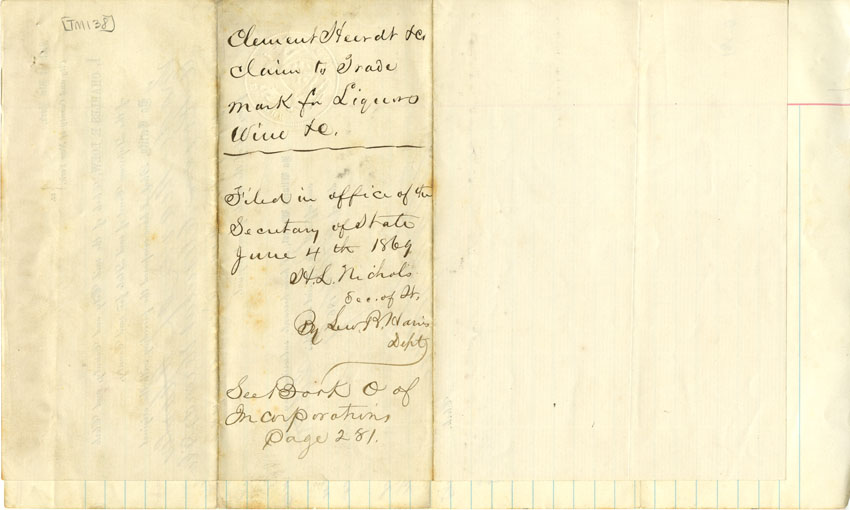 [TM138]
Clement Heerdt &c
Claim to Trade
mark for Liquors
Wine &c.
Filed in office of the
Secretary of State
June 4th 1869
H.L. Nichols
Sec. of St.
By Lew. B. Harris
Dept
See Book O of
Incorporations
page 281.